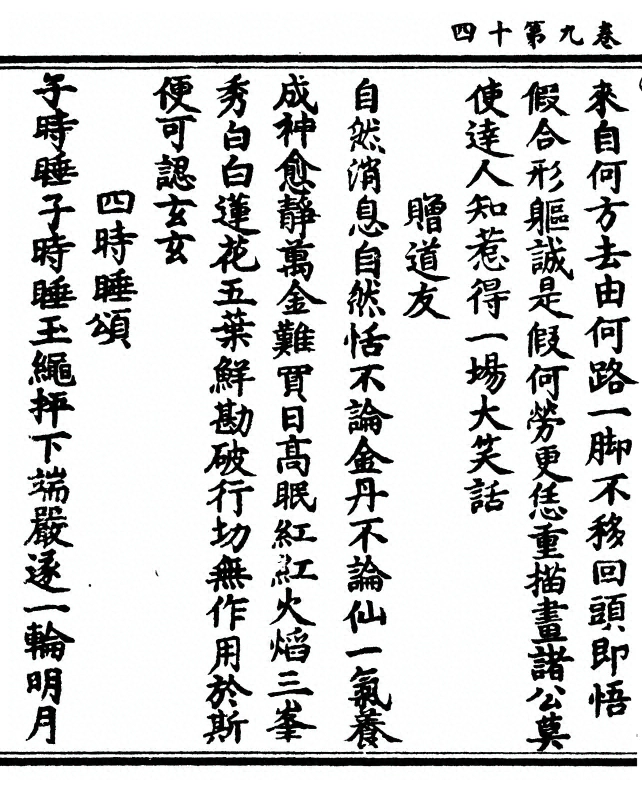 卷九第十四
來自何方去由何路一脚不移回頭即悟
假合形軀誠是假何勞更恁重描畫諸公莫
使達人知惹得一場大笑話
贈道友
自然消息自然恬不論金丹不論仙一氣養
成神愈靜萬金難買日高眠紅紅火熖三峯
秀白白蓮花五葉鮮勘破行功無作用於斯
便可認玄玄
四時睡頌
子時睡子時睡玉繩抨下端嚴逐一輪明月